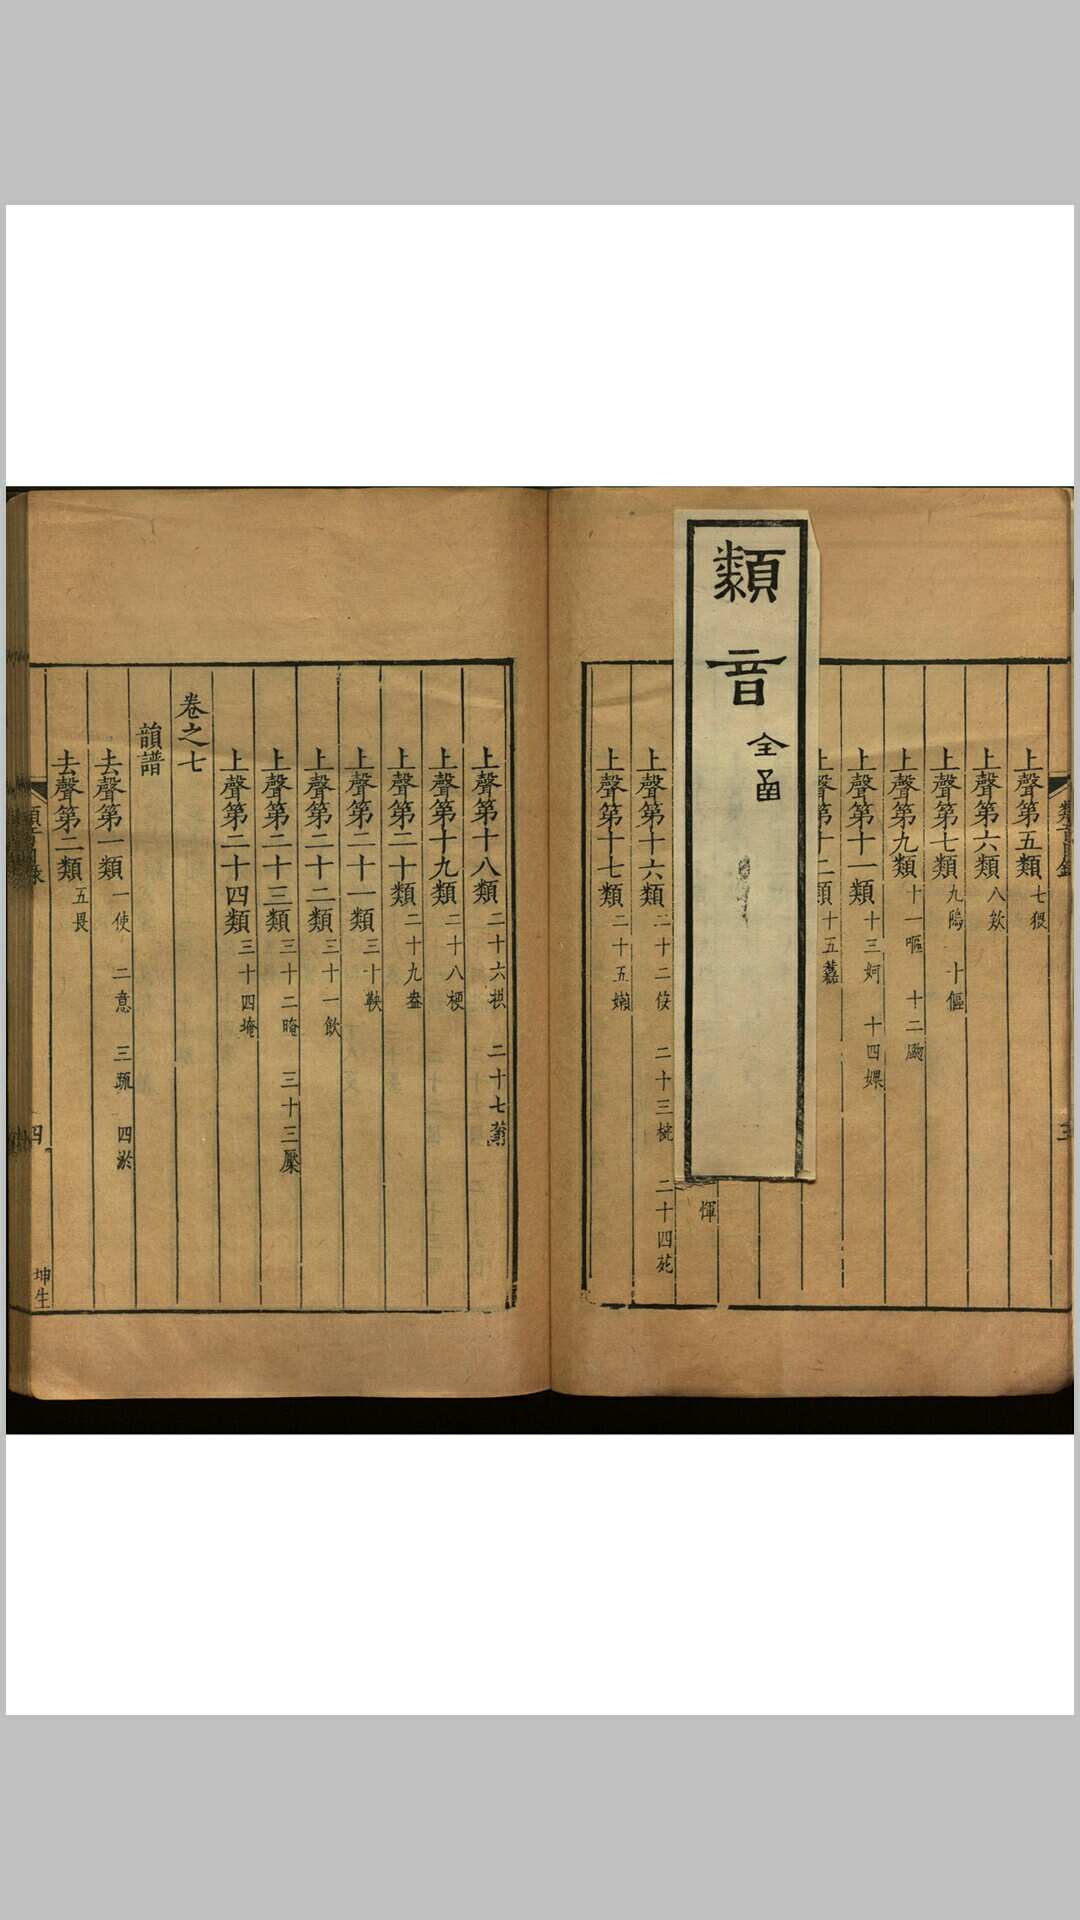 類音
全函
上聲第五類 七猥
上聲第六類 八欸
上聲第七類 九隖 十傴
上聲第九類 十一嘔 十二
上聲第十一類 十三妸 十四婐
上聲第十二類 十五
惲
上聲第十六類 二十二 二十三 二十四苑
上聲第十七類 二十五嬾
三
上聲第十八類 二十六拱 二十七蓊
上聲第十九類 二十八梗
上聲第二十類 二十九盎
上聲第二十一類 三十鞅
上聲第二十二類 三十一飲
上聲第二十三類 三十二晻 三十三黶
上聲第二十四類 三十四埯
卷之七
韻譜
去聲第一類 一使 二意 三疏 四淤
去聲第二類 五畏
類音目錄
四
坤生